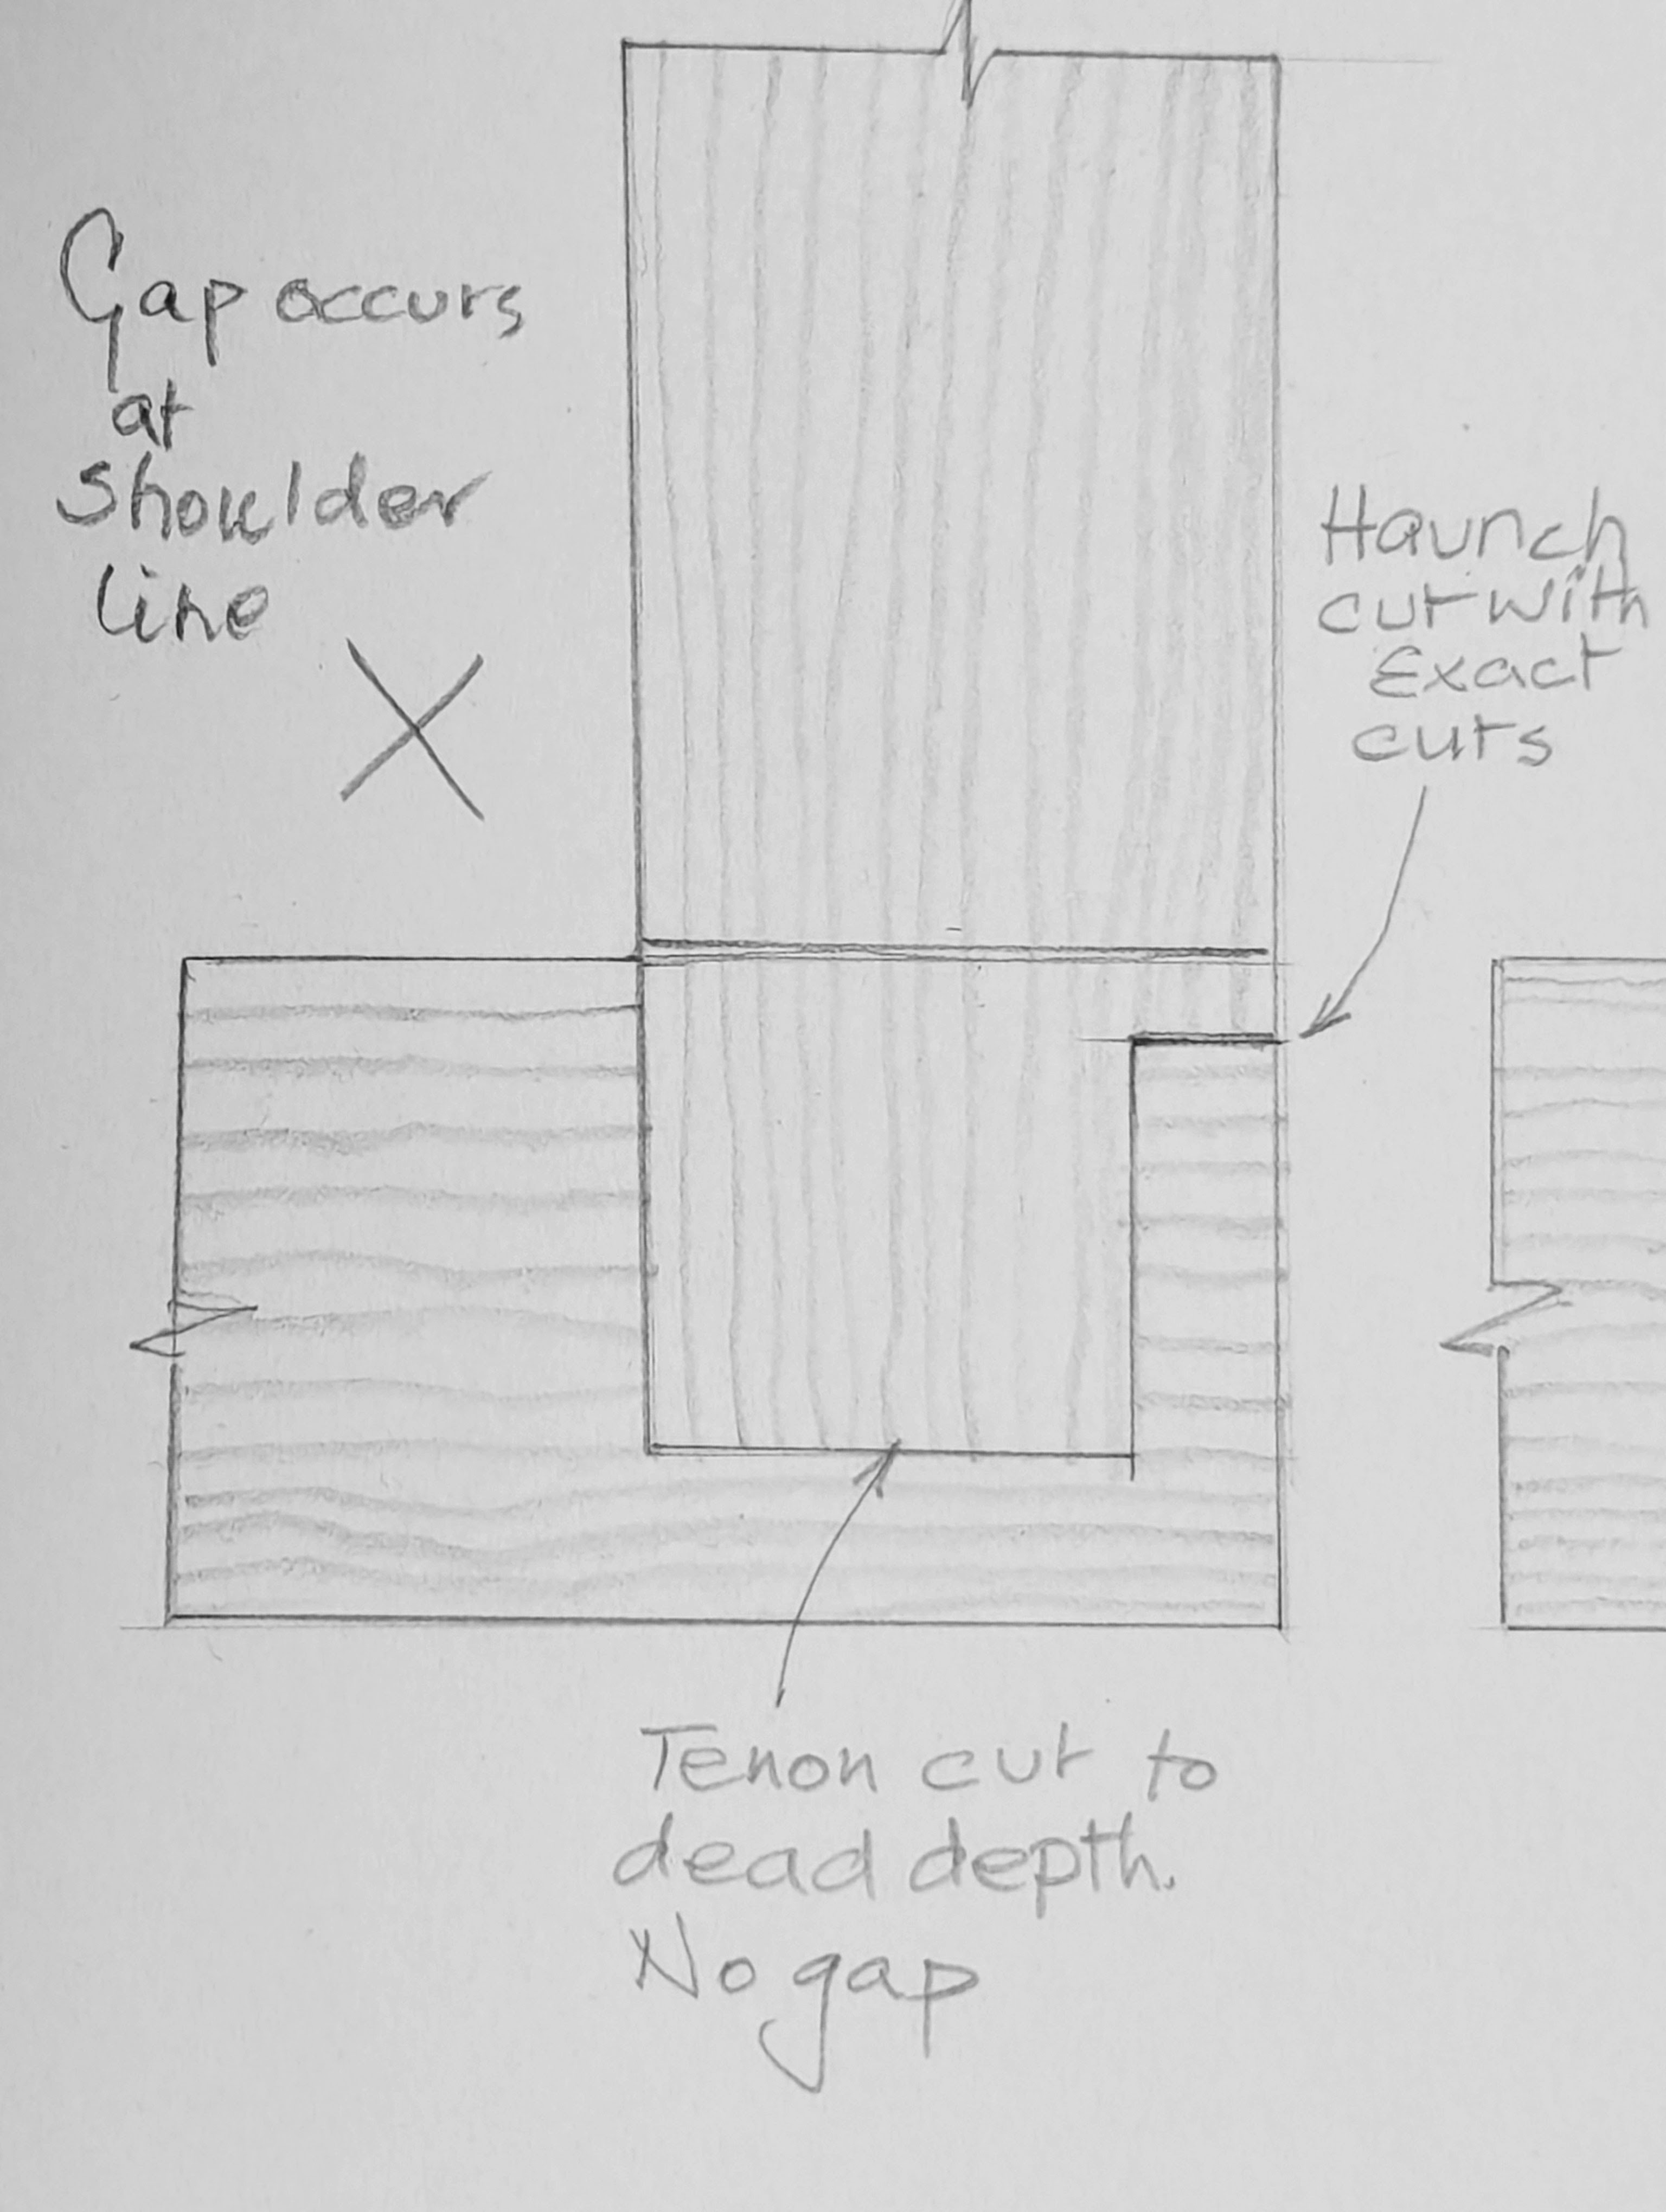 Gap occurs
at
shoulder
line
Haunch
cut with
Exact
cuts
Tenon cut to
dead depth.
No gap